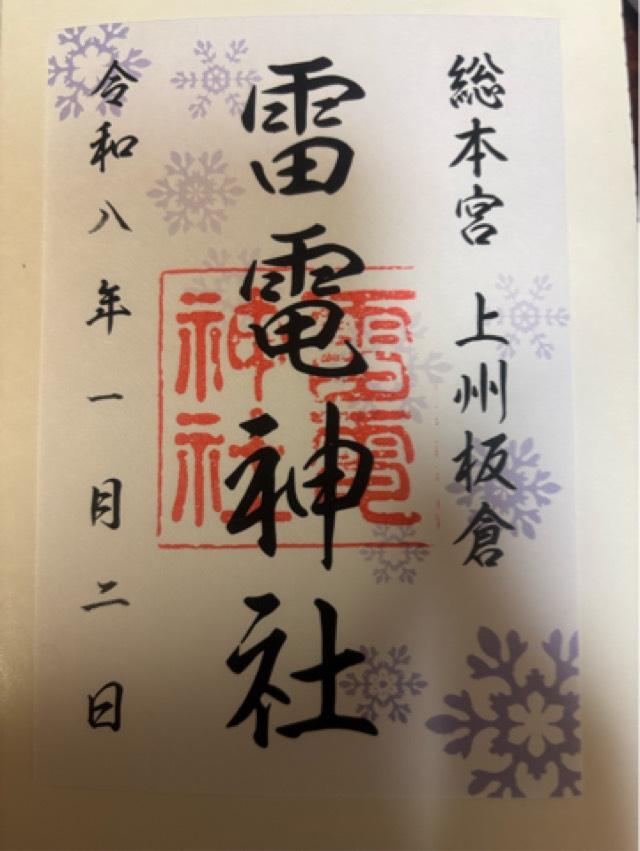 総本宮 上州板倉
雷電神社
雷電神社
令和八年一月二日